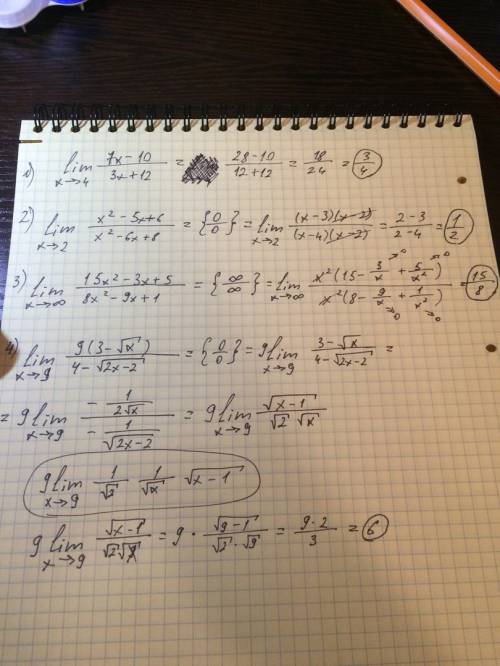 1) lim x→4 (7x-10)/(3x+12) = (28-10)/(12+12) = 18/24 = 3/4
2) lim x→2 (x²-5x+6)/(x²-6x+8) = {0/0} = lim x→2 ((x-3)(x-2))/((x-4)(x-2)) = (2-3)/(2-4) = 1/2
3) lim x→∞ (15x²-3x+5)/(8x²-9x+1) = {∞/∞} = lim x→∞ (x²(15 - 3/x→0 + 5/x²→0))/(x²(8 - 9/x→0 + 1/x²→0)) = 15/8
4) lim x→9 (9(3-√x))/(4-√(2x-2)) = {0/0} = 9 lim x→9 (3-√x)/(4-√(2x-2)) =
= 9 lim x→9 (-1/(2√x))/(-1/√(2x-2)) = 9 lim x→9 √(x-1)/(√2 √x)
9 lim x→9 1/√2 1/√x √(x-1)
9 lim x→9 √(x-1)/(√2√x) = 9 · √(9-1)/(√2·√9) = (9·2)/3 = 6